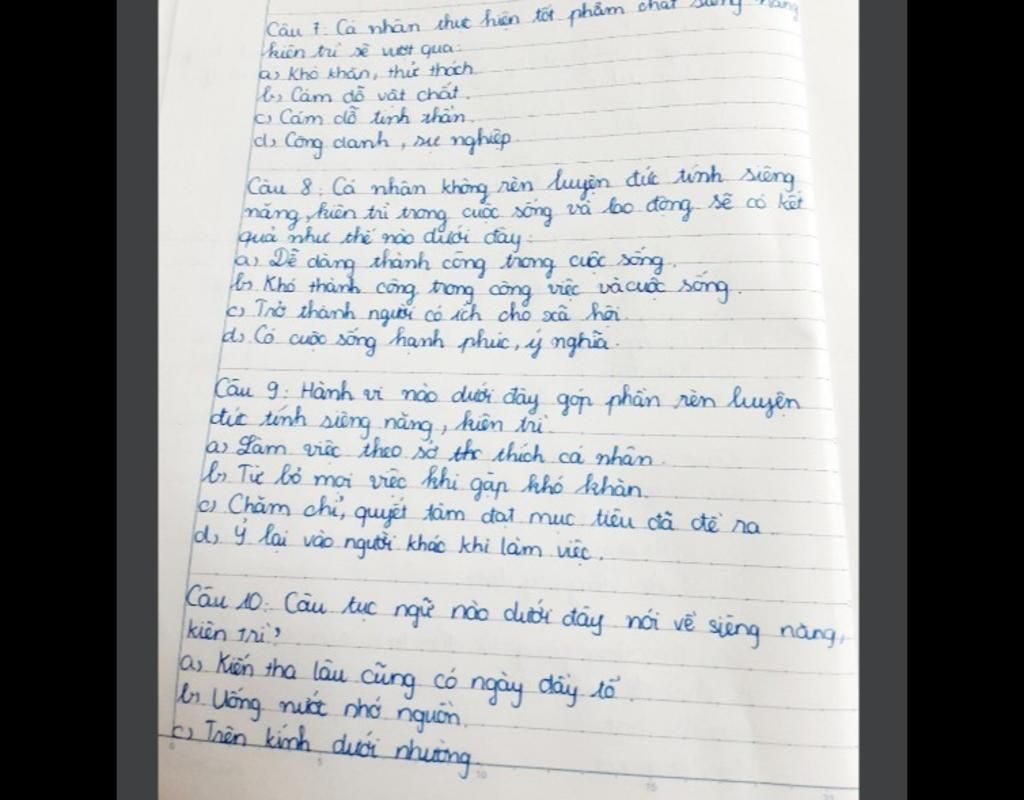 Câu 7: Cá nhân thực hiện tốt phẩm chất siêng năng
kiên trì sẽ vượt qua:
a) Khó khăn, thử thách.
b) Cám dỗ vật chất.
c) Cám dỗ tinh thần.
d) Công danh, sự nghiệp.
Câu 8: Cá nhân không rèn luyện đức tính siêng
năng, kiên trì trong cuộc sống và lao động sẽ có kết
quả như thế nào dưới đây:
a) Dễ dàng thành công trong cuộc sống.
b) Khó thành công trong công việc và cuộc sống.
c) Trở thành người có ích cho xã hội.
d) Có cuộc sống hạnh phúc, ý nghĩa.
Câu 9: Hành vi nào dưới đây góp phần rèn luyện
đức tính siêng năng, kiên trì
a) Làm việc theo sở thích cá nhân.
b) Từ bỏ mọi việc khi gặp khó khăn.
c) Chăm chỉ, quyết tâm đạt mục tiêu đã đề ra
d) Ỷ lại vào người khác khi làm việc.
Câu 10: Câu tục ngữ nào dưới đây nói về siêng năng,
kiên trì?
a) Kiến tha lâu cũng có ngày đầy tổ.
b) Uống nước nhớ nguồn.
c) Trên kính dưới nhường.
0 5 10 15